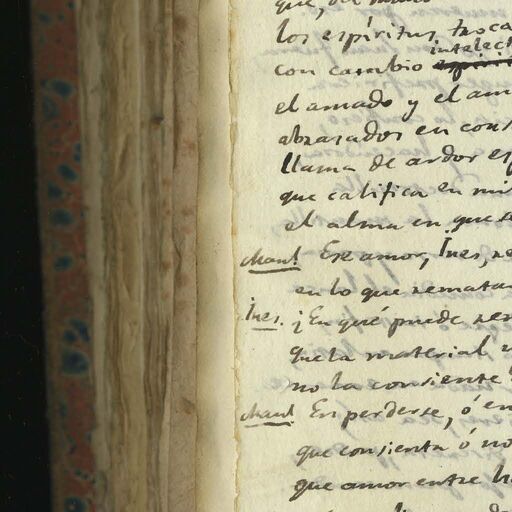 los espíritus, troca
intelect
con cambio
el amado y el am
abrasados en cons
llama de ardor es
que califica en mi
el alma en que s
Manl. Ese amor, Ines, ne
en lo que remata
Ines. ¿En qué puede ser
que la material u
no la consiente
Manl. En perderse, ó en
que consienta ó no
que amor entre h